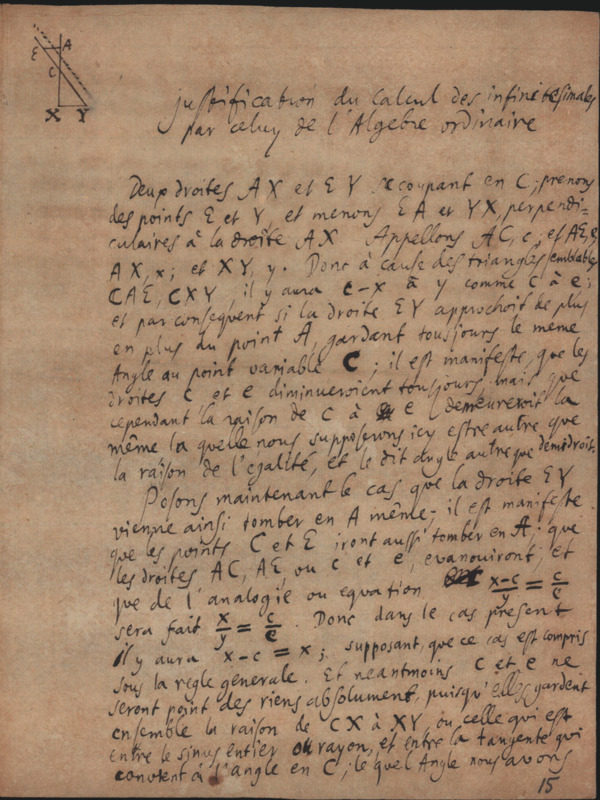 E A
C
X Y
justification du Calcul des infinitesimales
par celuy de l'Algebre ordinaire
Deux droites AX et EY se coupant en C; prenons
des points E et Y, et menons EA et YX, perpendi=
culaires à la droite AX Appellons AC, c; et AE, e;
AX, x; et XY, y. Donc à cause des triangles semblables
CAE, CXY il y aura c-x à y comme c à e;
et par consequent si la droite EY approchoit de plus
en plus du point A, gardant tousjours le meme
Angle au point variable C; il est manifeste, que les
droites c et e diminueroient tousjours mais que
cependant la raison de c à e demeureroit la
même la quelle nous supposerons icy estre autre que
la raison de l'egalité, et le dit angle autre que demidroit.
Posons maintenant le cas que la droite EY
vienne ainsi tomber en A même; il est manifeste
que les points C et E iront aussi tomber en A; que
les droites AC, AE, ou c et e, evanouiront; et
que de l'analogie ou equation x-c/y = c/e
sera fait x/y = c/e. Donc dans le cas present
il y aura x-c = x; supposant, que ce cas est compris
sous la regle generale. Et neantmoins c et e ne
seront point des riens absolument, puisqu'elles gardent
ensemble la raison de CX à XY, ou celle qui est
entre le sinus entier ou rayon, et entre la tangente qui
convient à l'angle en C; le quel Angle nous avons
15